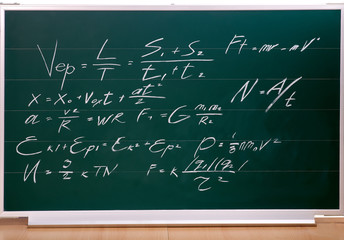 Vср = L/T = (S₁ + S₂)/(t₁ + t₂)   Ft = mv - mV°
x = x₀ + V₀xt + at²/2   N = A/t
a = v²/R = WR   F₁ = G m₁m₂/R²
Eк1 + Eр1 = Eк2 + Eр2   P = 1/3 nm₀v²
U = 3/2 KTN   F = K |q₁||q₂|/r²